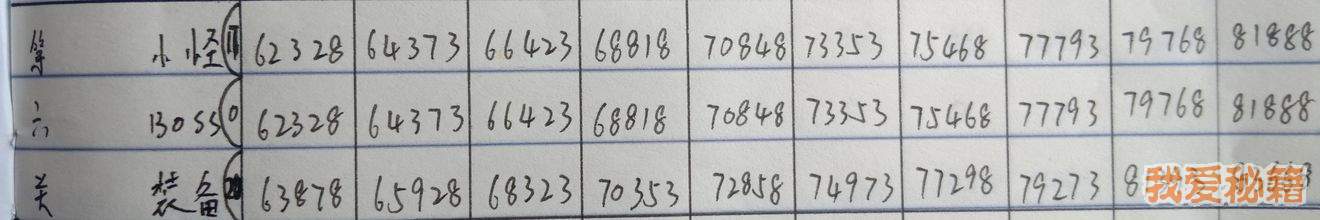 第 小怪 62328 64373 66423 68818 70848 73353 75468 77793 79768 81888
六 BOSS(0 62328 64373 66423 68818 70848 73353 75468 77793 79768 81888
关 装备 63878 65928 68323 70353 72858 74973 77298 79273
我爱秘籍